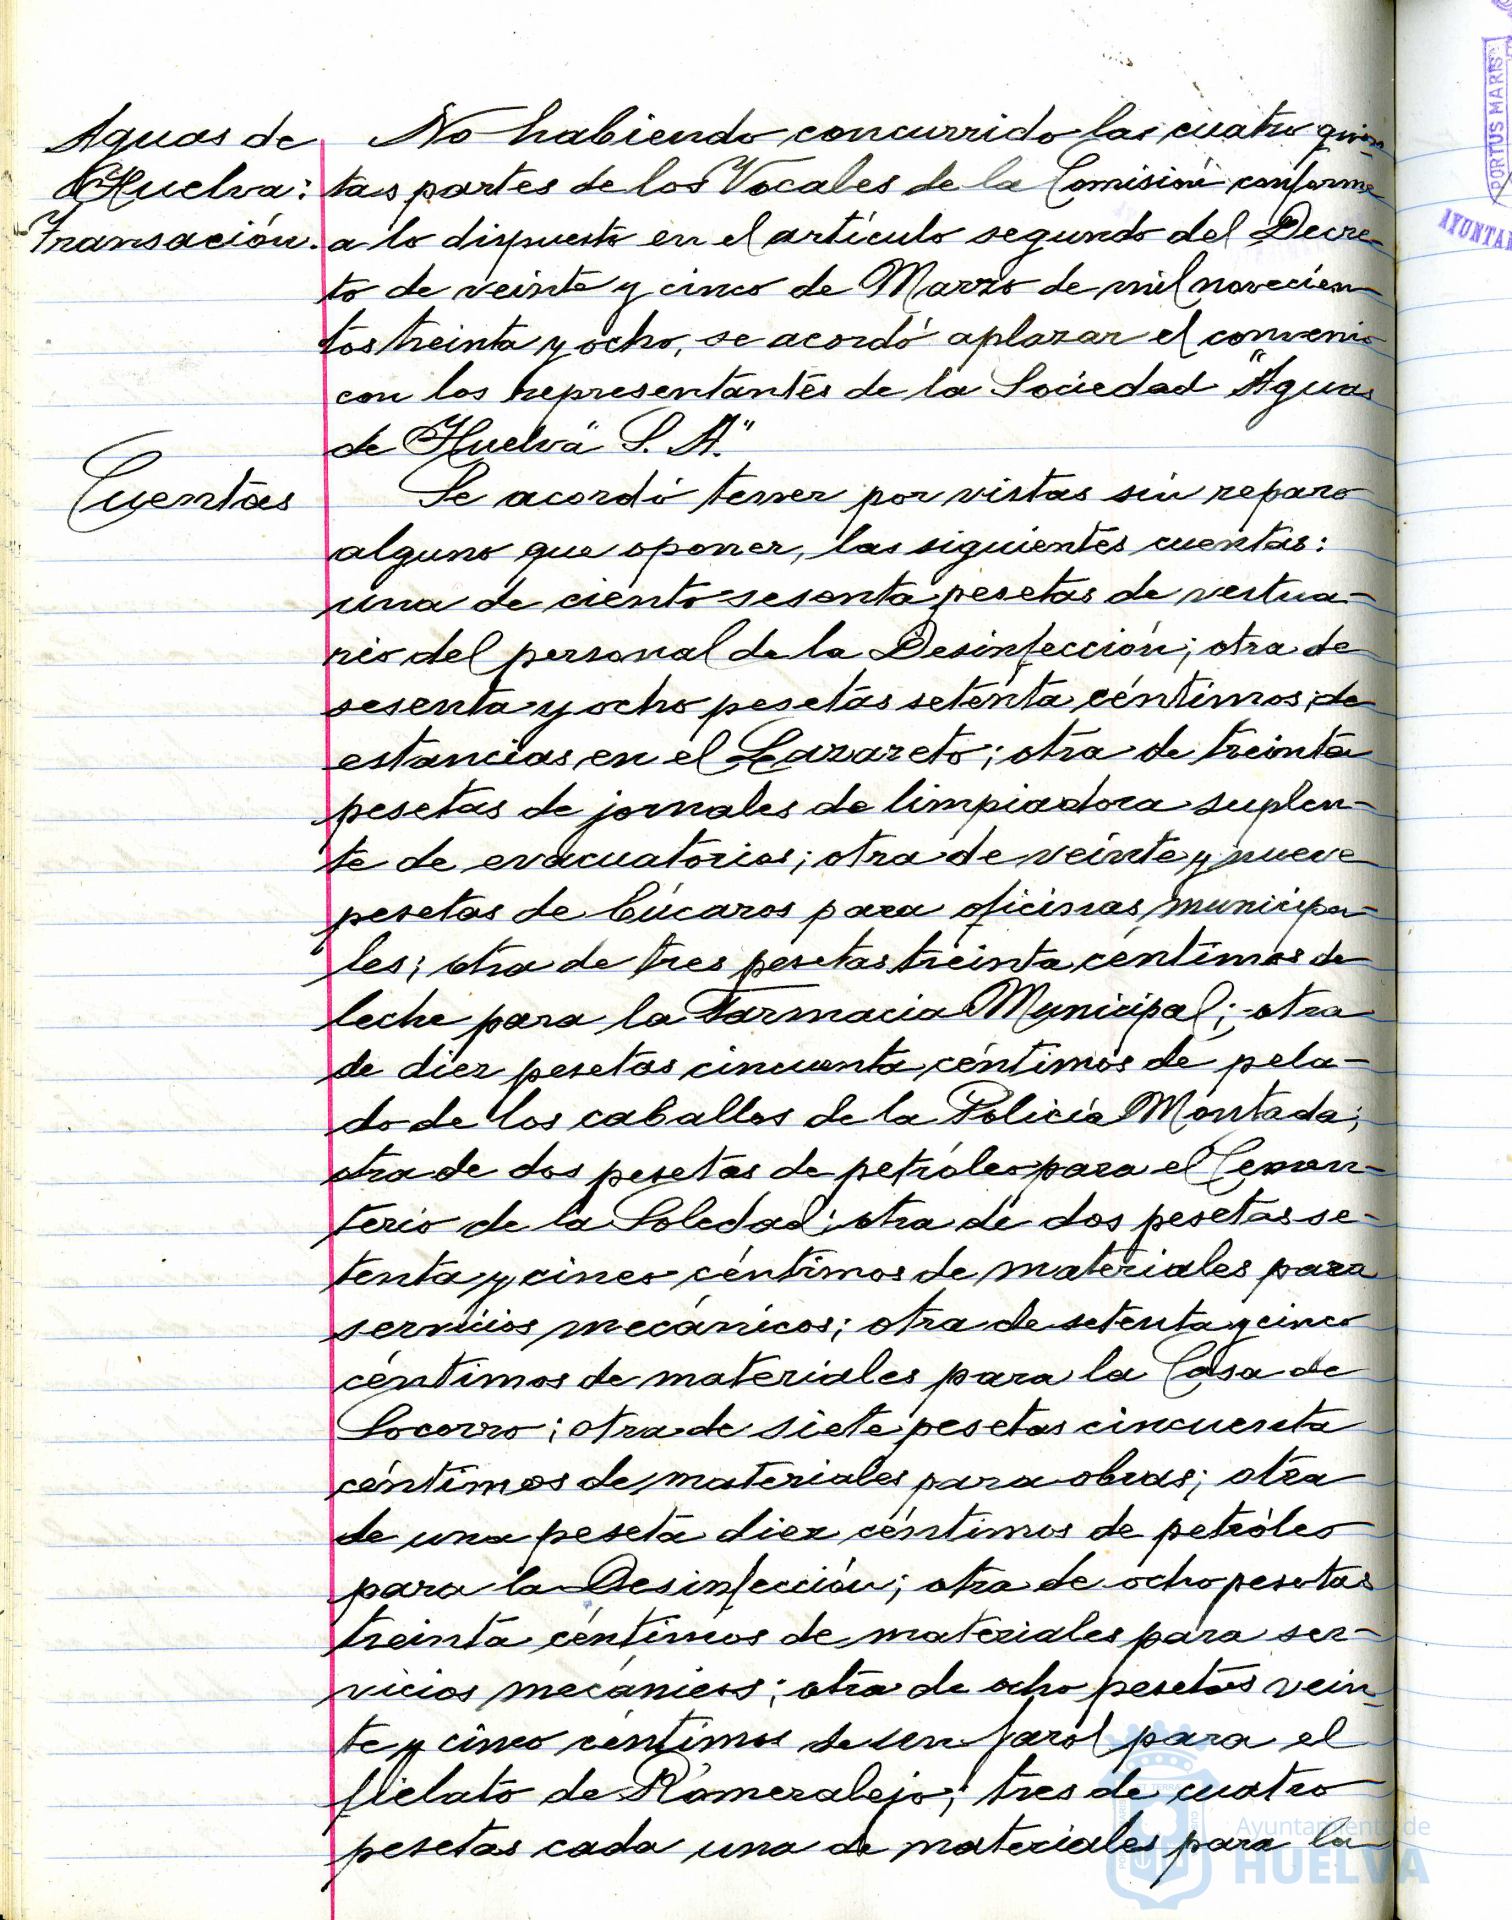 Aguas de
Huelva:
Transación.
No habiendo concurrido las cuatro quin-
tas partes de los Vocales de la Comisión conforme
a lo dispuesto en el artículo segundo del Decre-
to de veinte y cinco de Marzo de mil novecien-
tos treinta y ocho, se acordó aplazar el convenio
con los representantes de la Sociedad "Aguas
de Huelva" S. A."
Cuentas
Se acordó tener por vistas sin reparo
alguno que oponer, las siguientes cuentas:
una de ciento sesenta pesetas de vestua-
rio del personal de la Desinfección; otra de
sesenta y ocho pesetas setenta céntimos de
estancias en el Lazareto; otra de treinta
pesetas de jornales de limpiadora suplen-
te de evacuatorios; otra de veinte y nueve
pesetas de búcaros para oficinas municipa-
les; otra de tres pesetas treinta céntimos de
leche para la Farmacia Municipal; otra
de diez pesetas cincuenta céntimos de pela-
do de los caballos de la Policía Montada;
otra de dos pesetas de petróleo para el Cemen-
terio de la Soledad; otra de dos pesetas se-
tenta y cinco céntimos de materiales para
servicios mecánicos; otra de setenta y cinco
céntimos de materiales para la Casa de
Socorro; otra de siete pesetas cincuenta
céntimos de materiales para obras; otra
de una peseta diez céntimos de petróleo
para la Desinfección; otra de ocho pesetas
treinta céntimos de materiales para ser-
vicios mecánicos; otra de ocho pesetas vein-
te y cinco céntimos de un farol para el
fielato de Romeralejo; tres de cuatro
pesetas cada una de materiales para la
PORTUS MARIS
AYUNTA
Ayuntamiento de
HUELVA